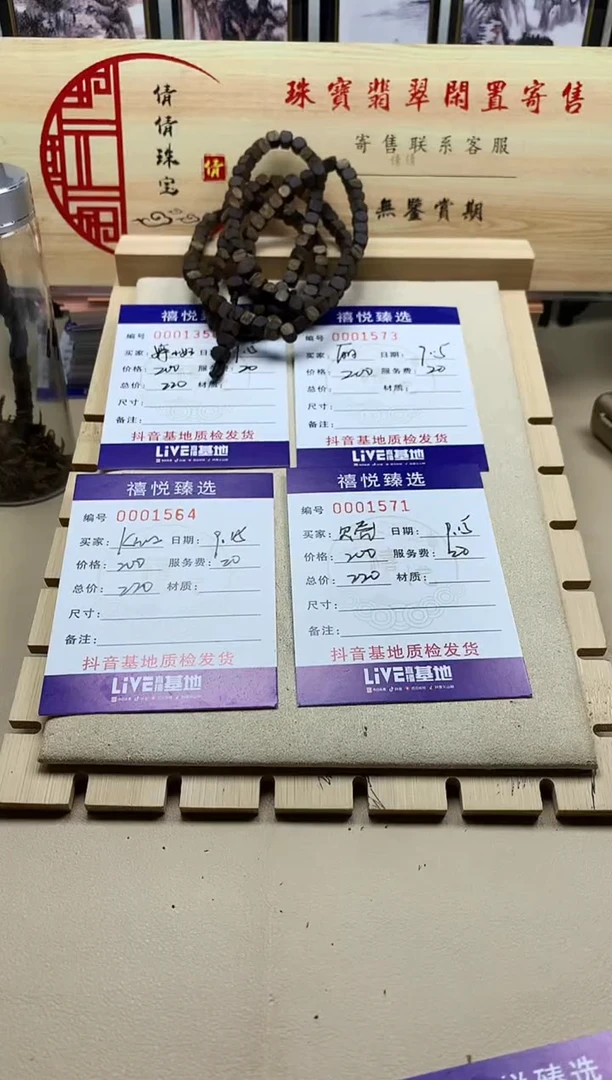 珠寶翡翠閑置寄售
倩倩珠宝
倩
寄售联系客服
倩倩
無鑒賞期
禧悦臻
编号 000135
买家: 日期: 9.15
价格: 200 服务费: 20
总价: 220 材质:
尺寸:
备注:
抖音基地质检发货
LiVE直播基地
禧悦臻选
编号 0001573
买家: 日期: 9.15
价格: 200 服务费: 20
总价: 材质:
尺寸:
备注:
抖音基地质检发货
LiVE直播基地
禧悦臻选
编号 0001564
买家: 日期: 9.15
价格: 200 服务费: 20
总价: 220 材质:
尺寸:
备注:
抖音基地质检发货
LiVE直播基地
禧悦臻选
编号 0001571
买家: 日期: 9.15
价格: 200 服务费: 20
总价: 220 材质:
尺寸:
备注:
抖音基地质检发货
LiVE直播基地
悦臻选